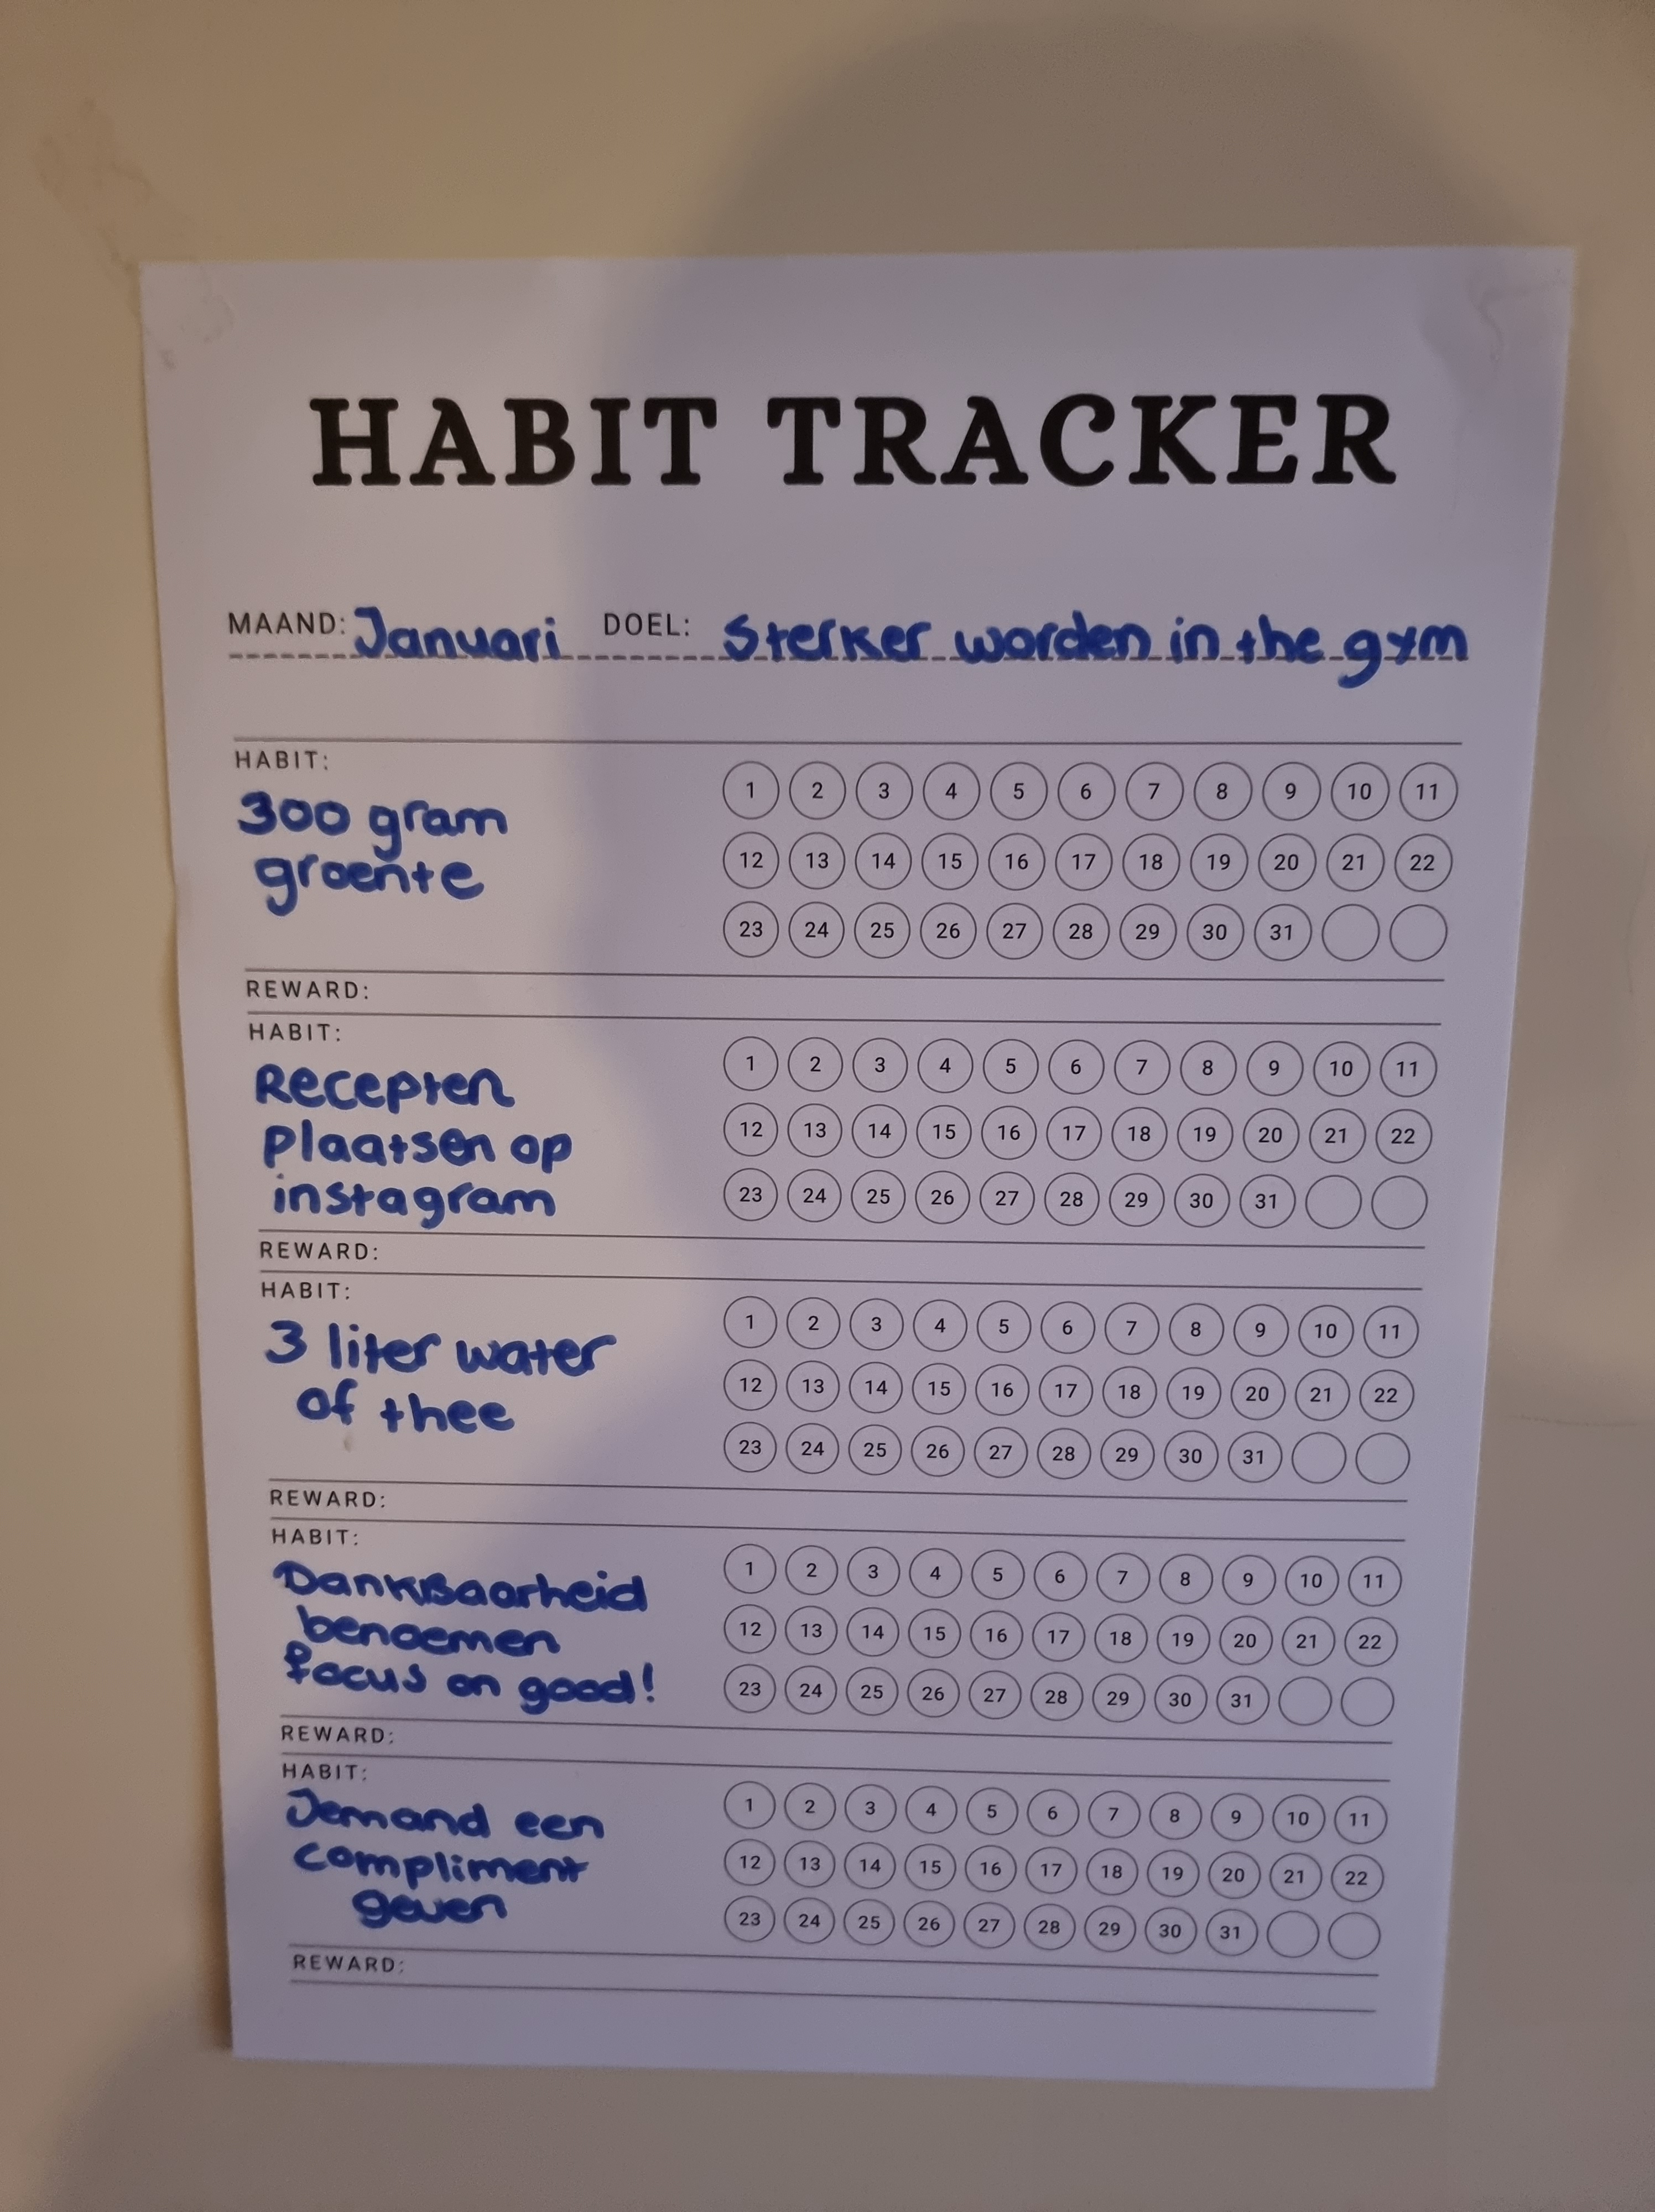 HABIT TRACKER
MAAND: Januari DOEL: Sterker worden in the gym
HABIT:
1 2 3 4 5 6 7 8 9 10 11
300 gram
groente
12 13 14 15 16 17 18 19 20 21 22
23 24 25 26 27 28 29 30 31
REWARD:
HABIT:
1 2 3 4 5 6 7 8 9 10 11
Recepten
plaatsen op
instagram
12 13 14 15 16 17 18 19 20 21 22
23 24 25 26 27 28 29 30 31
REWARD:
HABIT:
1 2 3 4 5 6 7 8 9 10 11
3 liter water
of thee
12 13 14 15 16 17 18 19 20 21 22
23 24 25 26 27 28 29 30 31
REWARD:
HABIT:
1 2 3 4 5 6 7 8 9 10 11
DankBaarheid
benoemen
focus on good!
12 13 14 15 16 17 18 19 20 21 22
23 24 25 26 27 28 29 30 31
REWARD:
HABIT:
1 2 3 4 5 6 7 8 9 10 11
Iemand een
compliment
geven
12 13 14 15 16 17 18 19 20 21 22
23 24 25 26 27 28 29 30 31
REWARD: